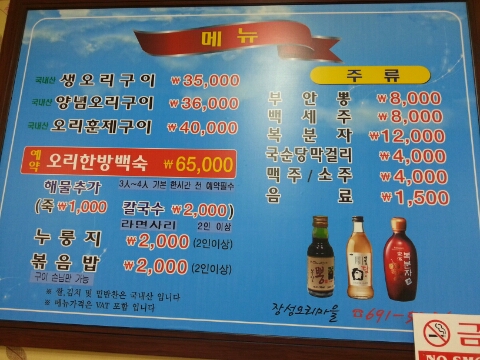 메뉴
국내산 생오리구이 ₩35,000
국내산 양념오리구이 ₩36,000
국내산 오리훈제구이 ₩40,000
예약 오리한방백숙 ₩65,000
해물추가 3人~4人 기본 한시간 전 예약필수
(죽 ₩1,000 칼국수 ₩2,000)
라면사리 2인 이상
누룽지 ₩2,000 (2인이상)
볶음밥 ₩2,000 (2인이상)
구이 손님만 가능
※ 쌀,김치 및 밑반찬은 국내산 입니다
※ 메뉴가격은 VAT 포함 입니다
주류
부안뽕 ₩8,000
백세주 ₩8,000
복분자 ₩12,000
국순당막걸리 ₩4,000
맥주/소주 ₩4,000
음료 ₩1,500
복분자
장성오리마을 ☎691-5
금
NO SMO